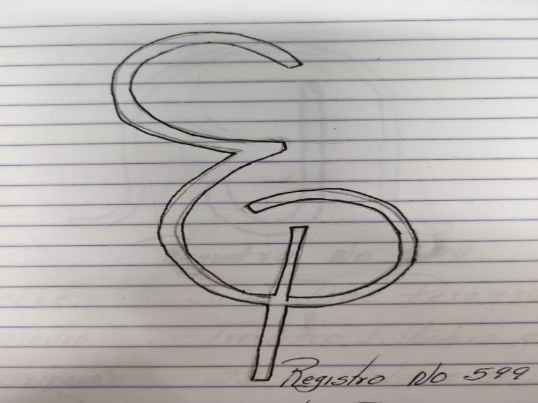 Registro No 599